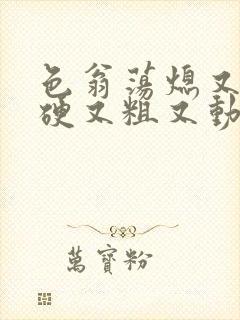 色翁荡熄又
硬又粗又動
萬寶粉